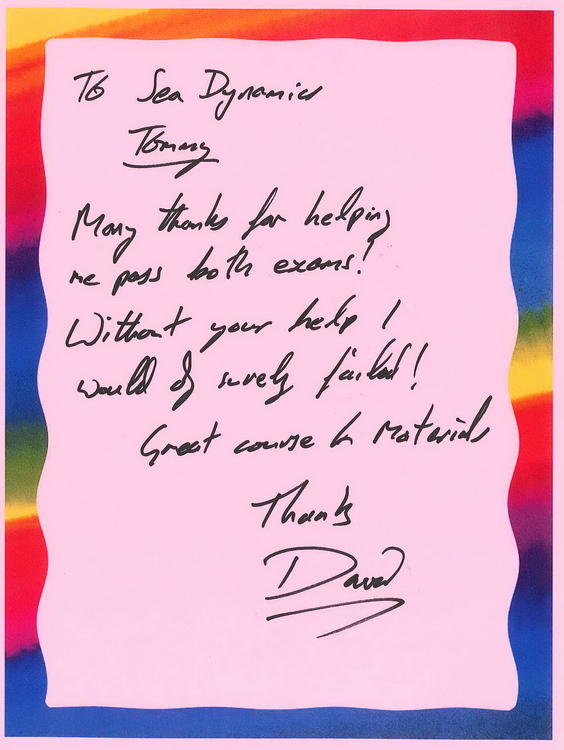 To Sea Dynamics
Tommy
Many thanks for helping
me pass both exams!
Without your help I
would of surely failed!
Great course & Materials
Thanks
David